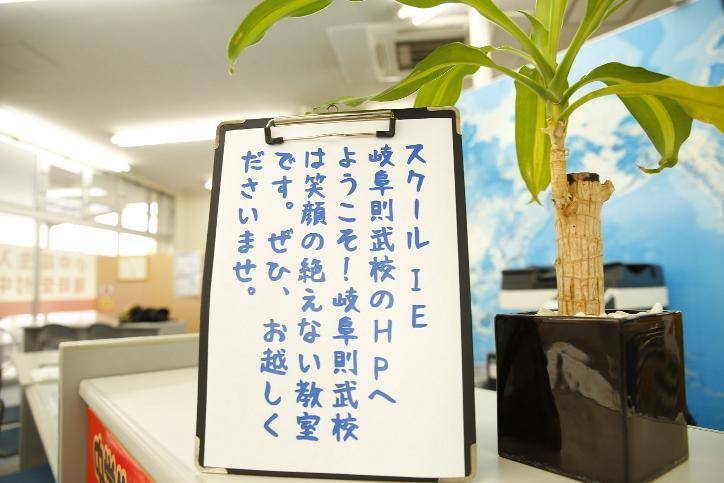 スクール IE
岐阜則武校のHPへ
ようこそ！岐阜則武校
は笑顔の絶えない教室
です。ぜひ、お越しく
ださいませ。